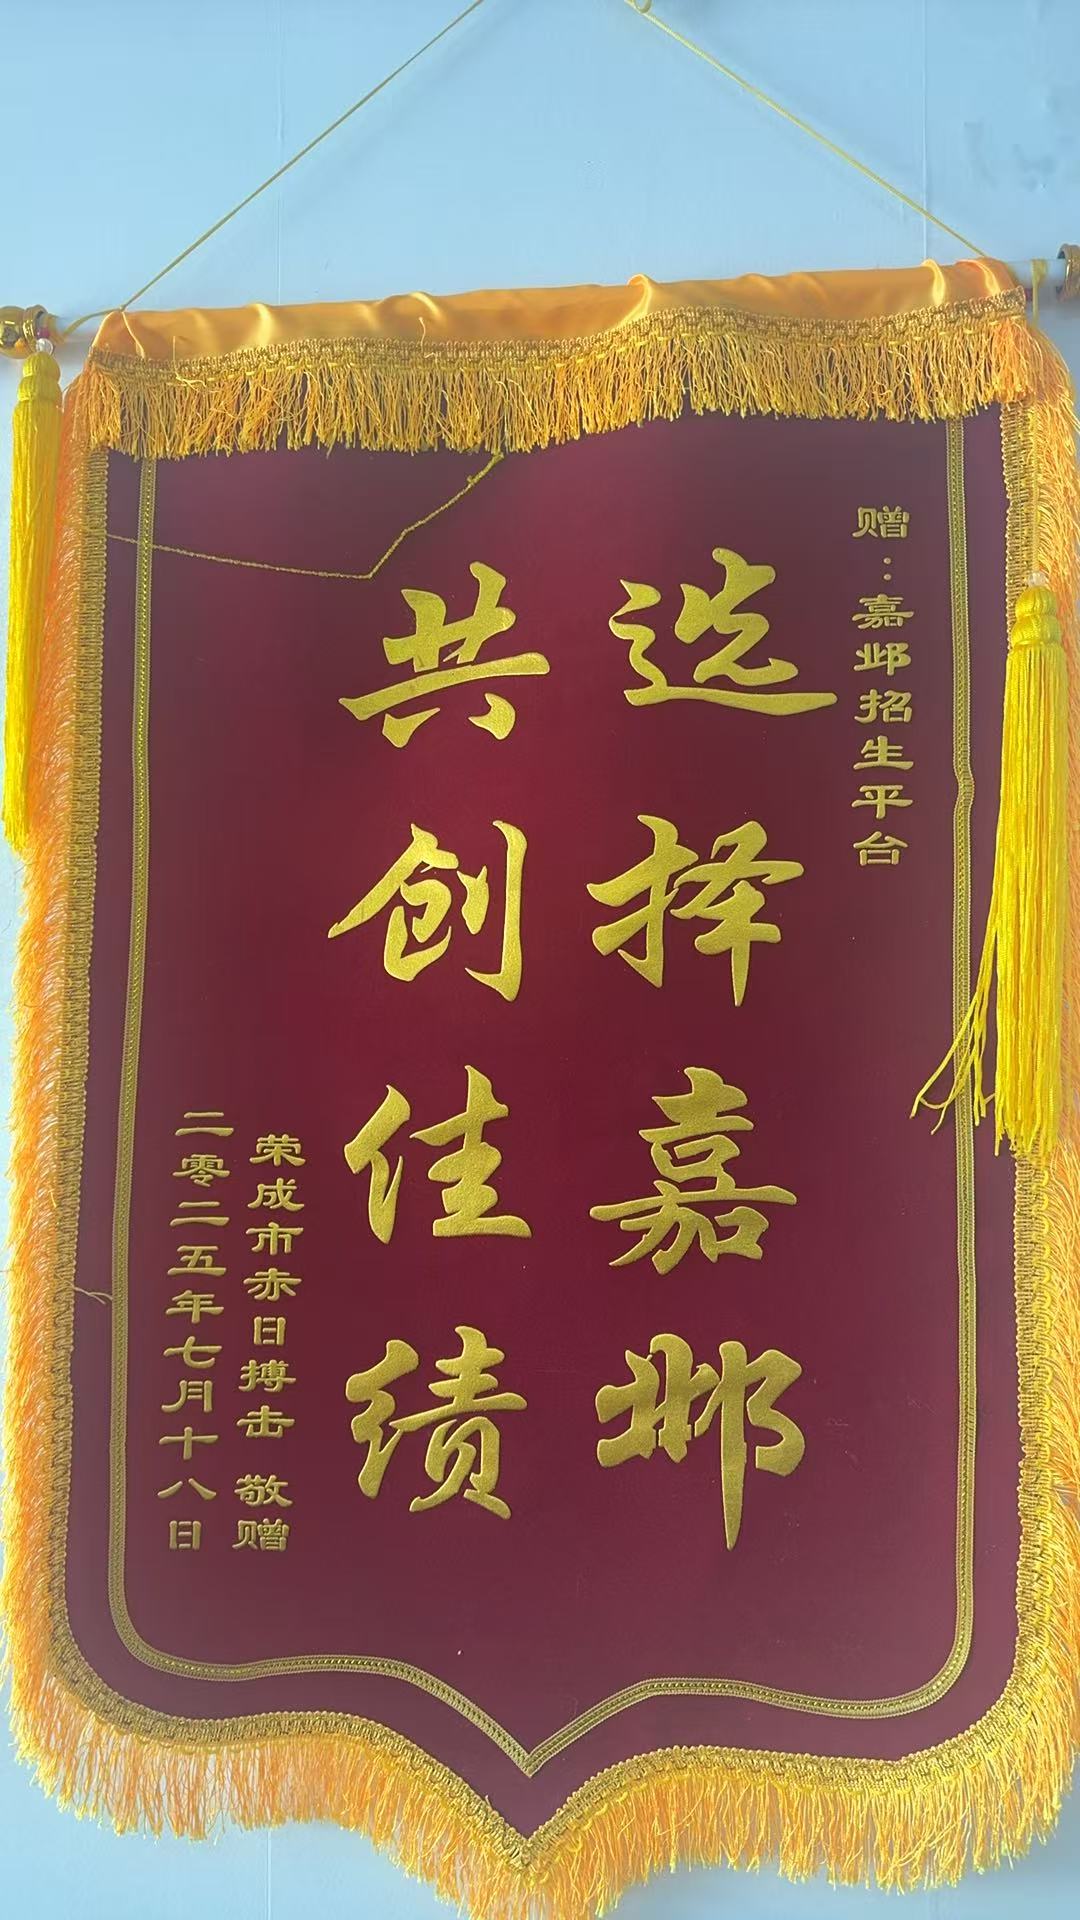 赠：嘉邺招生平台
选择嘉邺
共创佳绩
荣成市赤日搏击 敬赠
二零二五年七月十八日